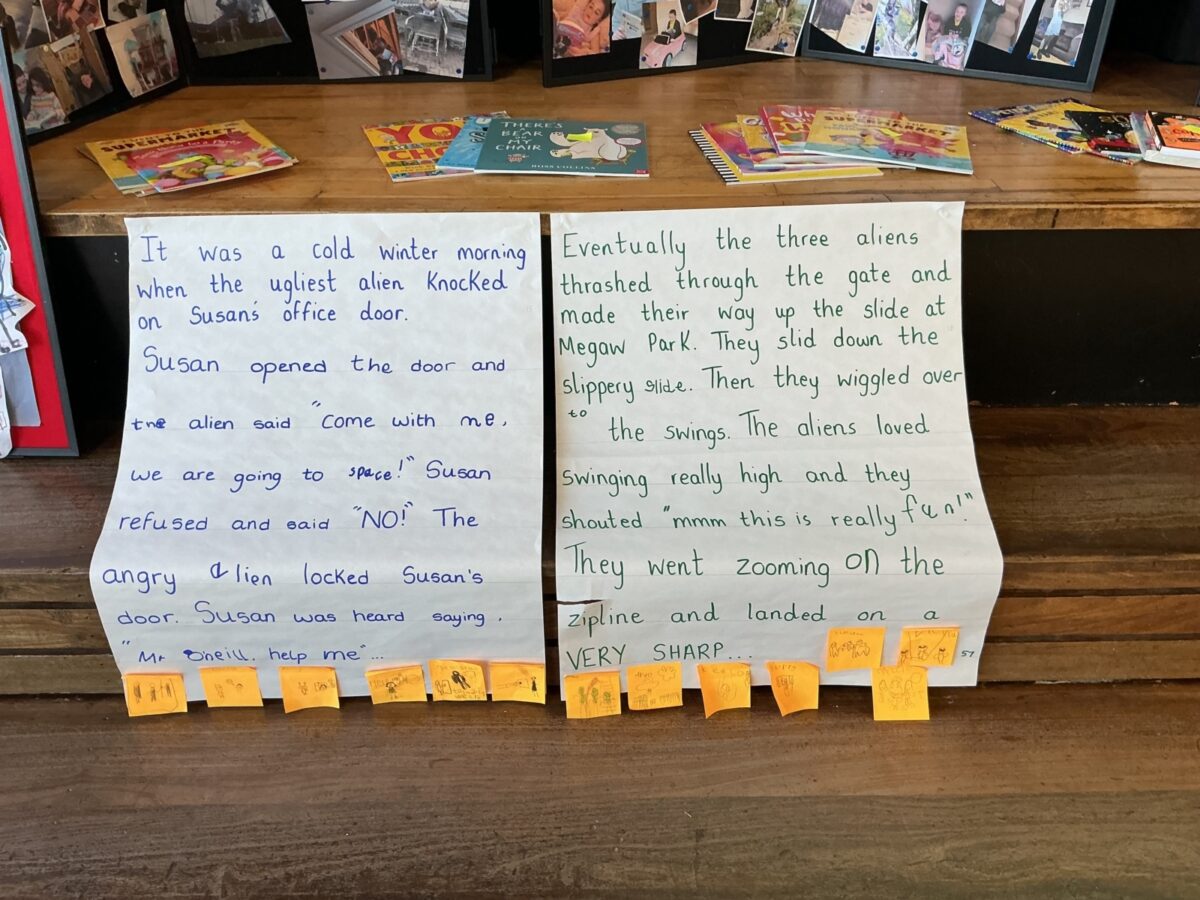 SUPERMARKET
YO
THERE'S
A BEAR
ON MY
CHAIR
ROSS COLLINS
SUPERMARKET
It was a cold winter morning
when the ugliest alien knocked
on Susan's office door.
Susan opened the door and
the alien said "Come with me,
we are going to space!" Susan
refused and said "NO!" The
angry alien locked Susan's
door. Susan was heard saying,
"Mr O'neill. help me"...
Eventually the three aliens
thrashed through the gate and
made their way up the slide at
Megaw Park. They slid down the
slippery slide. Then they wiggled over
to the swings. The aliens loved
swinging really high and they
shouted "mmm this is really fun!"
They went zooming on the
zipline and landed on a
VERY SHARP...
57